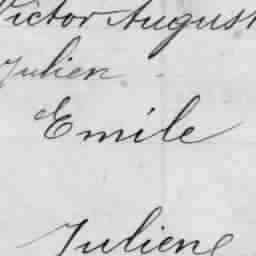 Victor August
Julien
Emile
Juliene